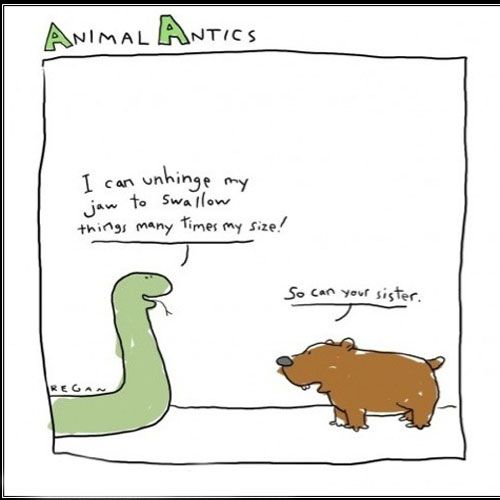 ANIMAL ANTICS
I can unhinge my
jaw to swallow
things many times my size!
So can your sister.
REGAN